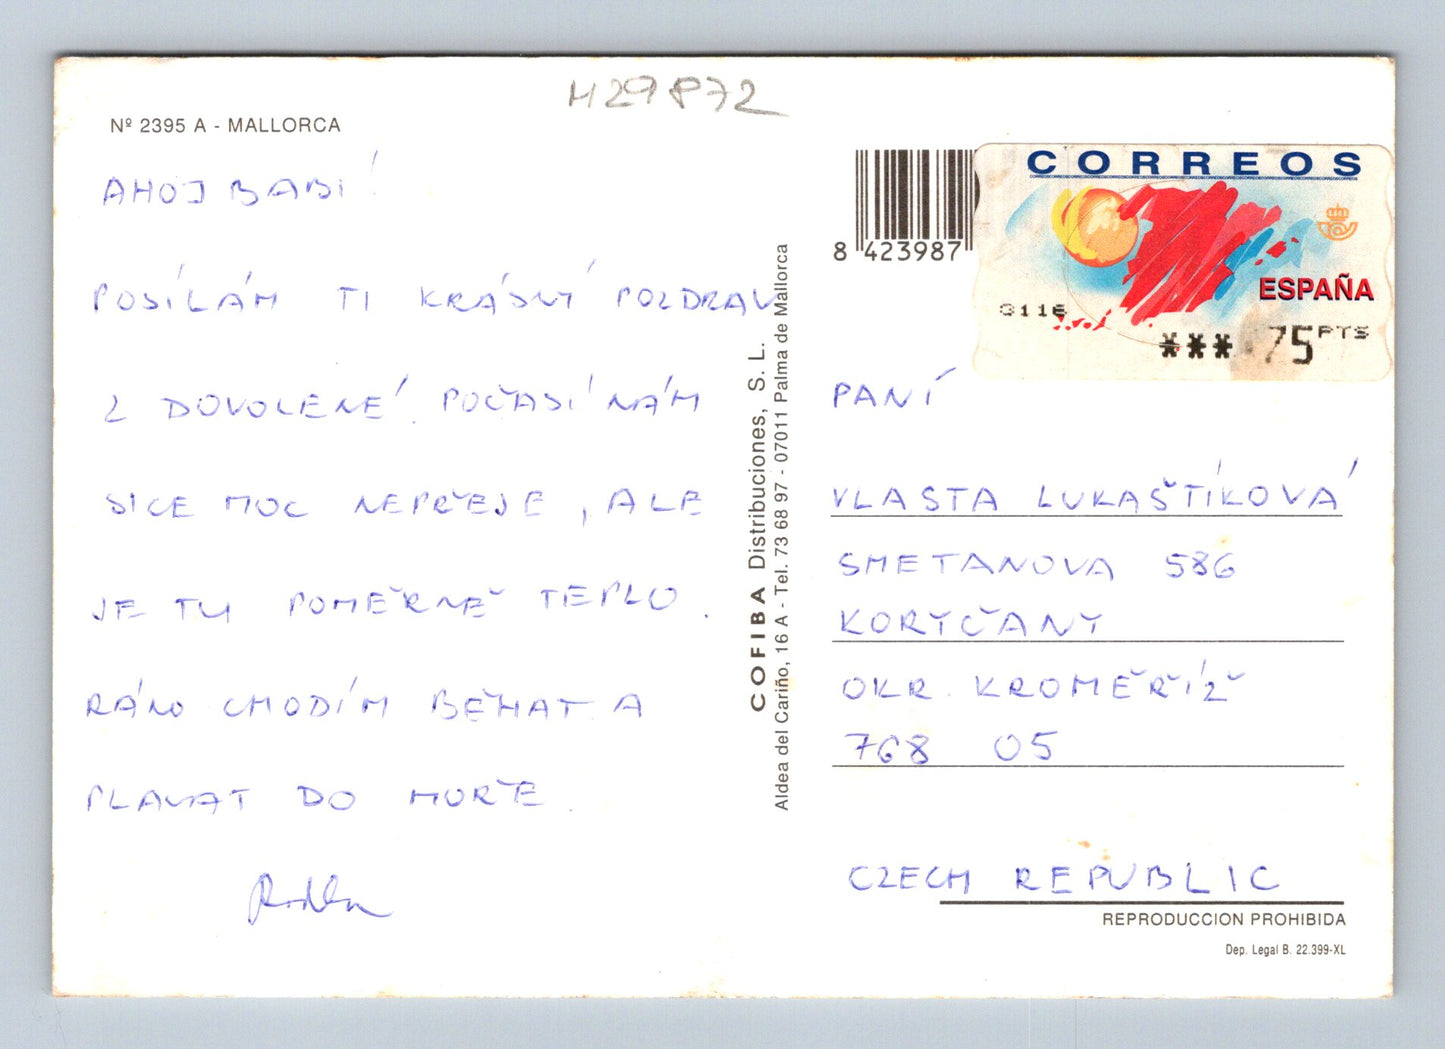 H29872
Nº 2395 A - MALLORCA
AHOJ BABI!
POSÍLÁM TI KRÁSNÝ POZDRAV
Z DOVOLENÉ. POČASÍ NÁM
SICE MOC NEPŘEJE, ALE
JE TU POMĚRNĚ TEPLO.
RÁNO CHODÍM BĚHAT A
PLAVAT DO MOŘE.
COFIBA Distribuciones, S. L.
Aldea del Cariño, 16 A - Tel. 73 68 97 - 07011 Palma de Mallorca
8 423987
CORREOS
ESPAÑA
3116
***.75 PTS
PANÍ
VLASTA LUKAŠTÍKOVÁ
SMETANOVA 586
KORYČANY
OKR. KROMĚŘÍŽ
768 05
CZECH REPUBLIC
REPRODUCCION PROHIBIDA
Dep. Legal B. 22.399-XL